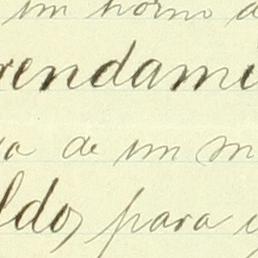 un horno d
rendami
a de un m
ldo, para